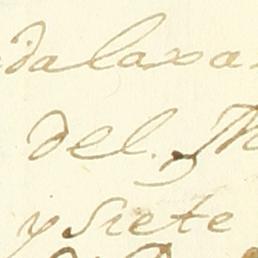 dalaxa
del. M
y siete